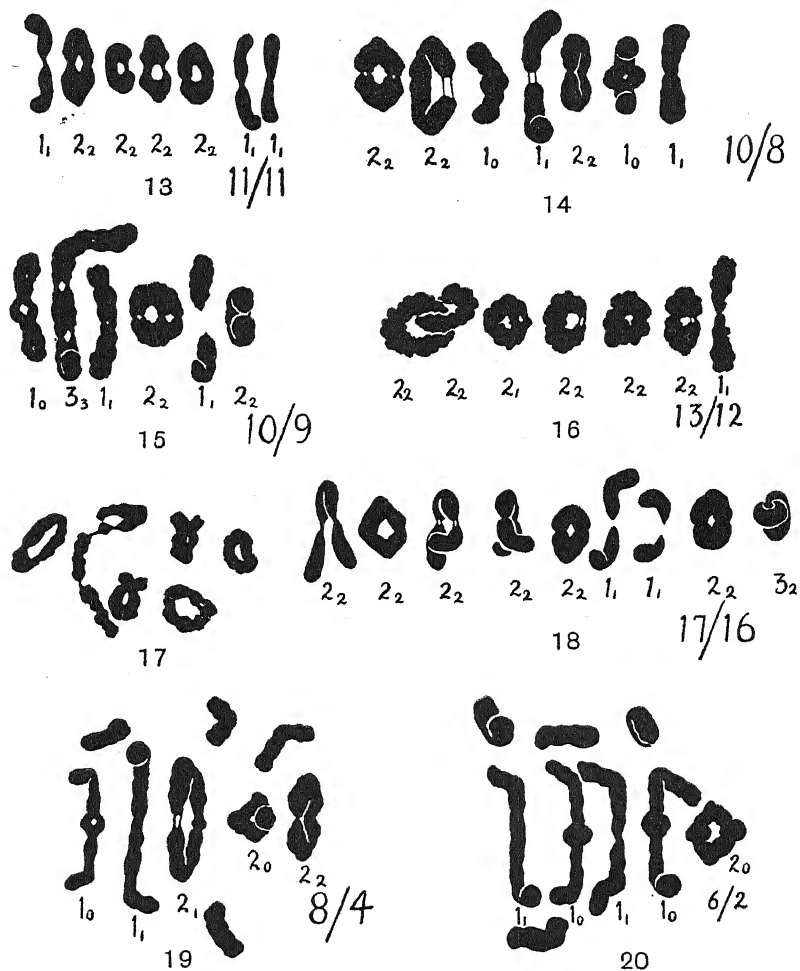 1₁ 2₂ 2₂ 2₂ 2₂ 1₁ 1₁
13 11/11
2₂ 2₂ 1₀ 1₁ 2₂ 1₀ 1₁ 10/8
14
1₀ 3₃ 1₁ 2₂ 1₁ 2₂
15 10/9
2₂ 2₂ 2₁ 2₂ 2₂ 2₂ 1₁
16 13/12
17
2₂ 2₂ 2₂ 2₂ 2₂ 1₁ 1₁ 2₂ 3₂
18 17/16
1₀ 1₁ 2₁ 2₀ 2₂
19 8/4
1₁ 1₀ 1₁ 1₀ 2₀
20 6/2